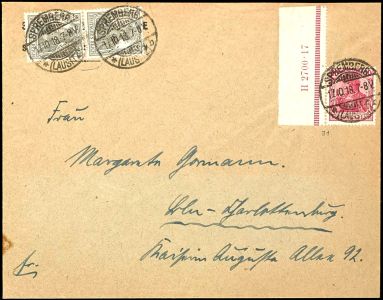 SPREMBERG
17.10.18.7-8V
*(LAUSITZ)
SPREMBERG
17.10.18.7-8V
*(LAUSITZ)
H 2700·17
SPREMBERG
17.10.18.7-8V
(LAUSITZ)
Frau
Margarete Gormann.
Charlottenburg.
Kaiserin Augusta Allee 92.
fr.